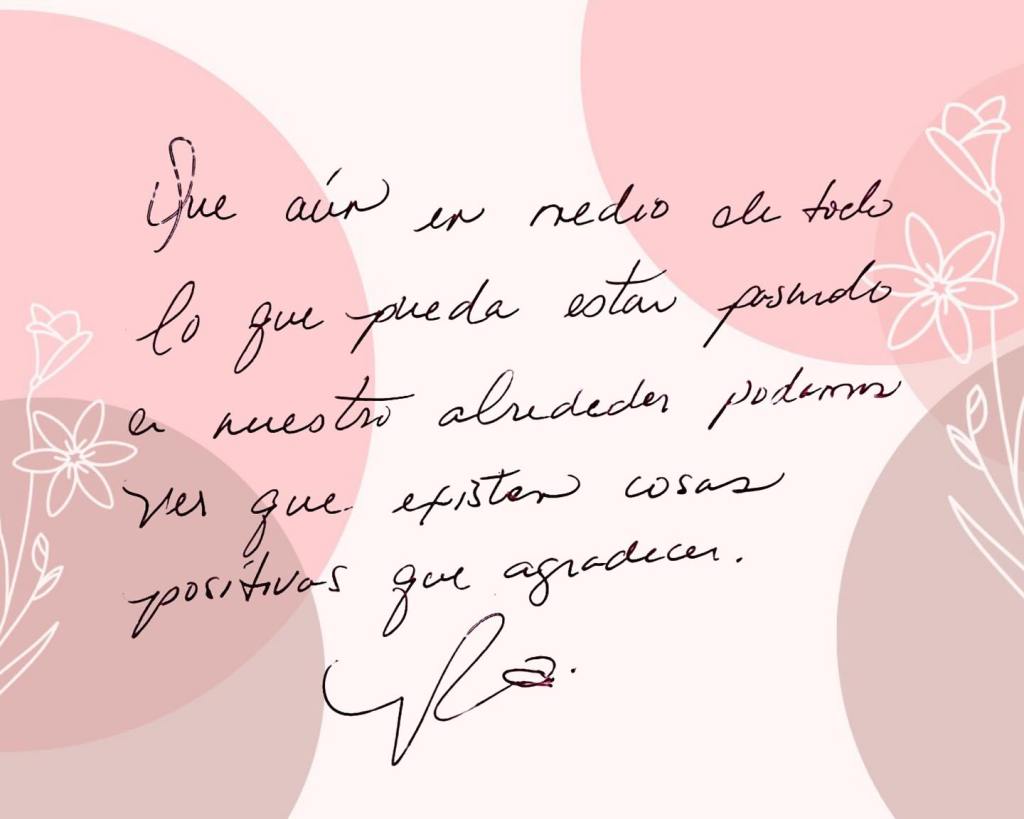 Que aún en medio de todo
lo que pueda estar pasando
en nuestro alrededor podamos
ver que existen cosas
positivas que agradecer.